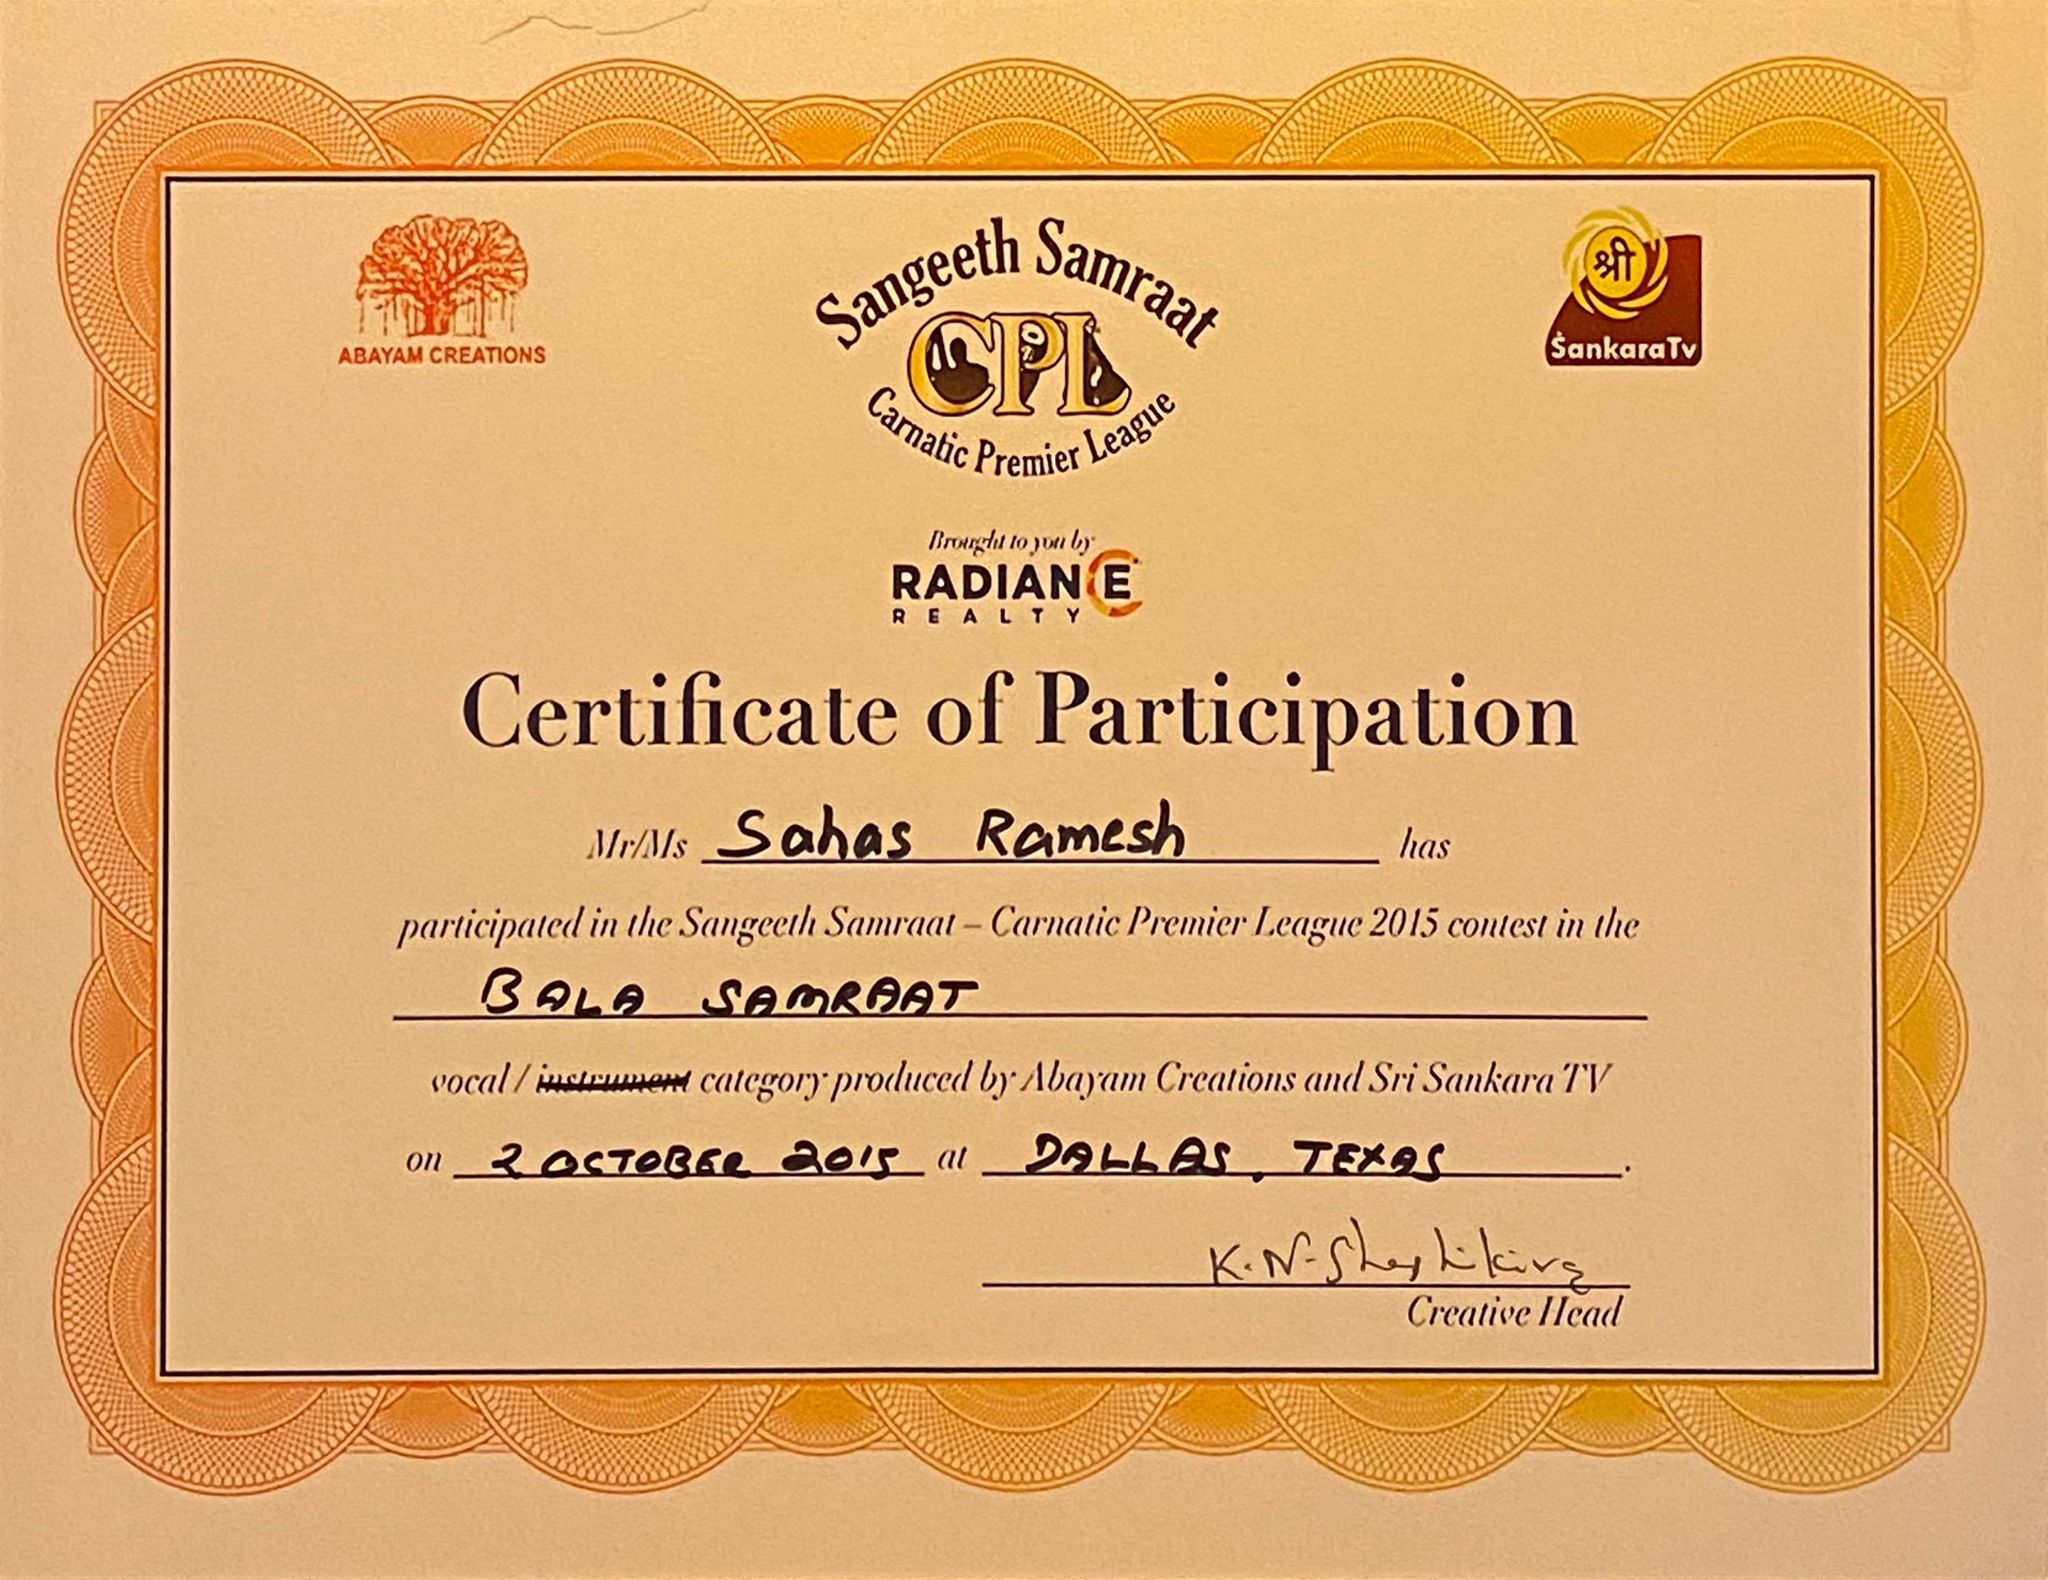 ABAYAM CREATIONS
Sangeeth Samraat
CPL
Carnatic Premier League
श्री
ŚankaraTv
Brought to you by
RADIANCE
REALTY
Certificate of Participation
Mr/Ms Sahas Ramesh has
participated in the Sangeeth Samraat – Carnatic Premier League 2015 contest in the
BALA SAMRAAT
vocal / instrument category produced by Abayam Creations and Sri Sankara TV
on 2 OCTOBER 2015 at DALLAS, TEXAS.
K.N.Shashikiran
Creative Head